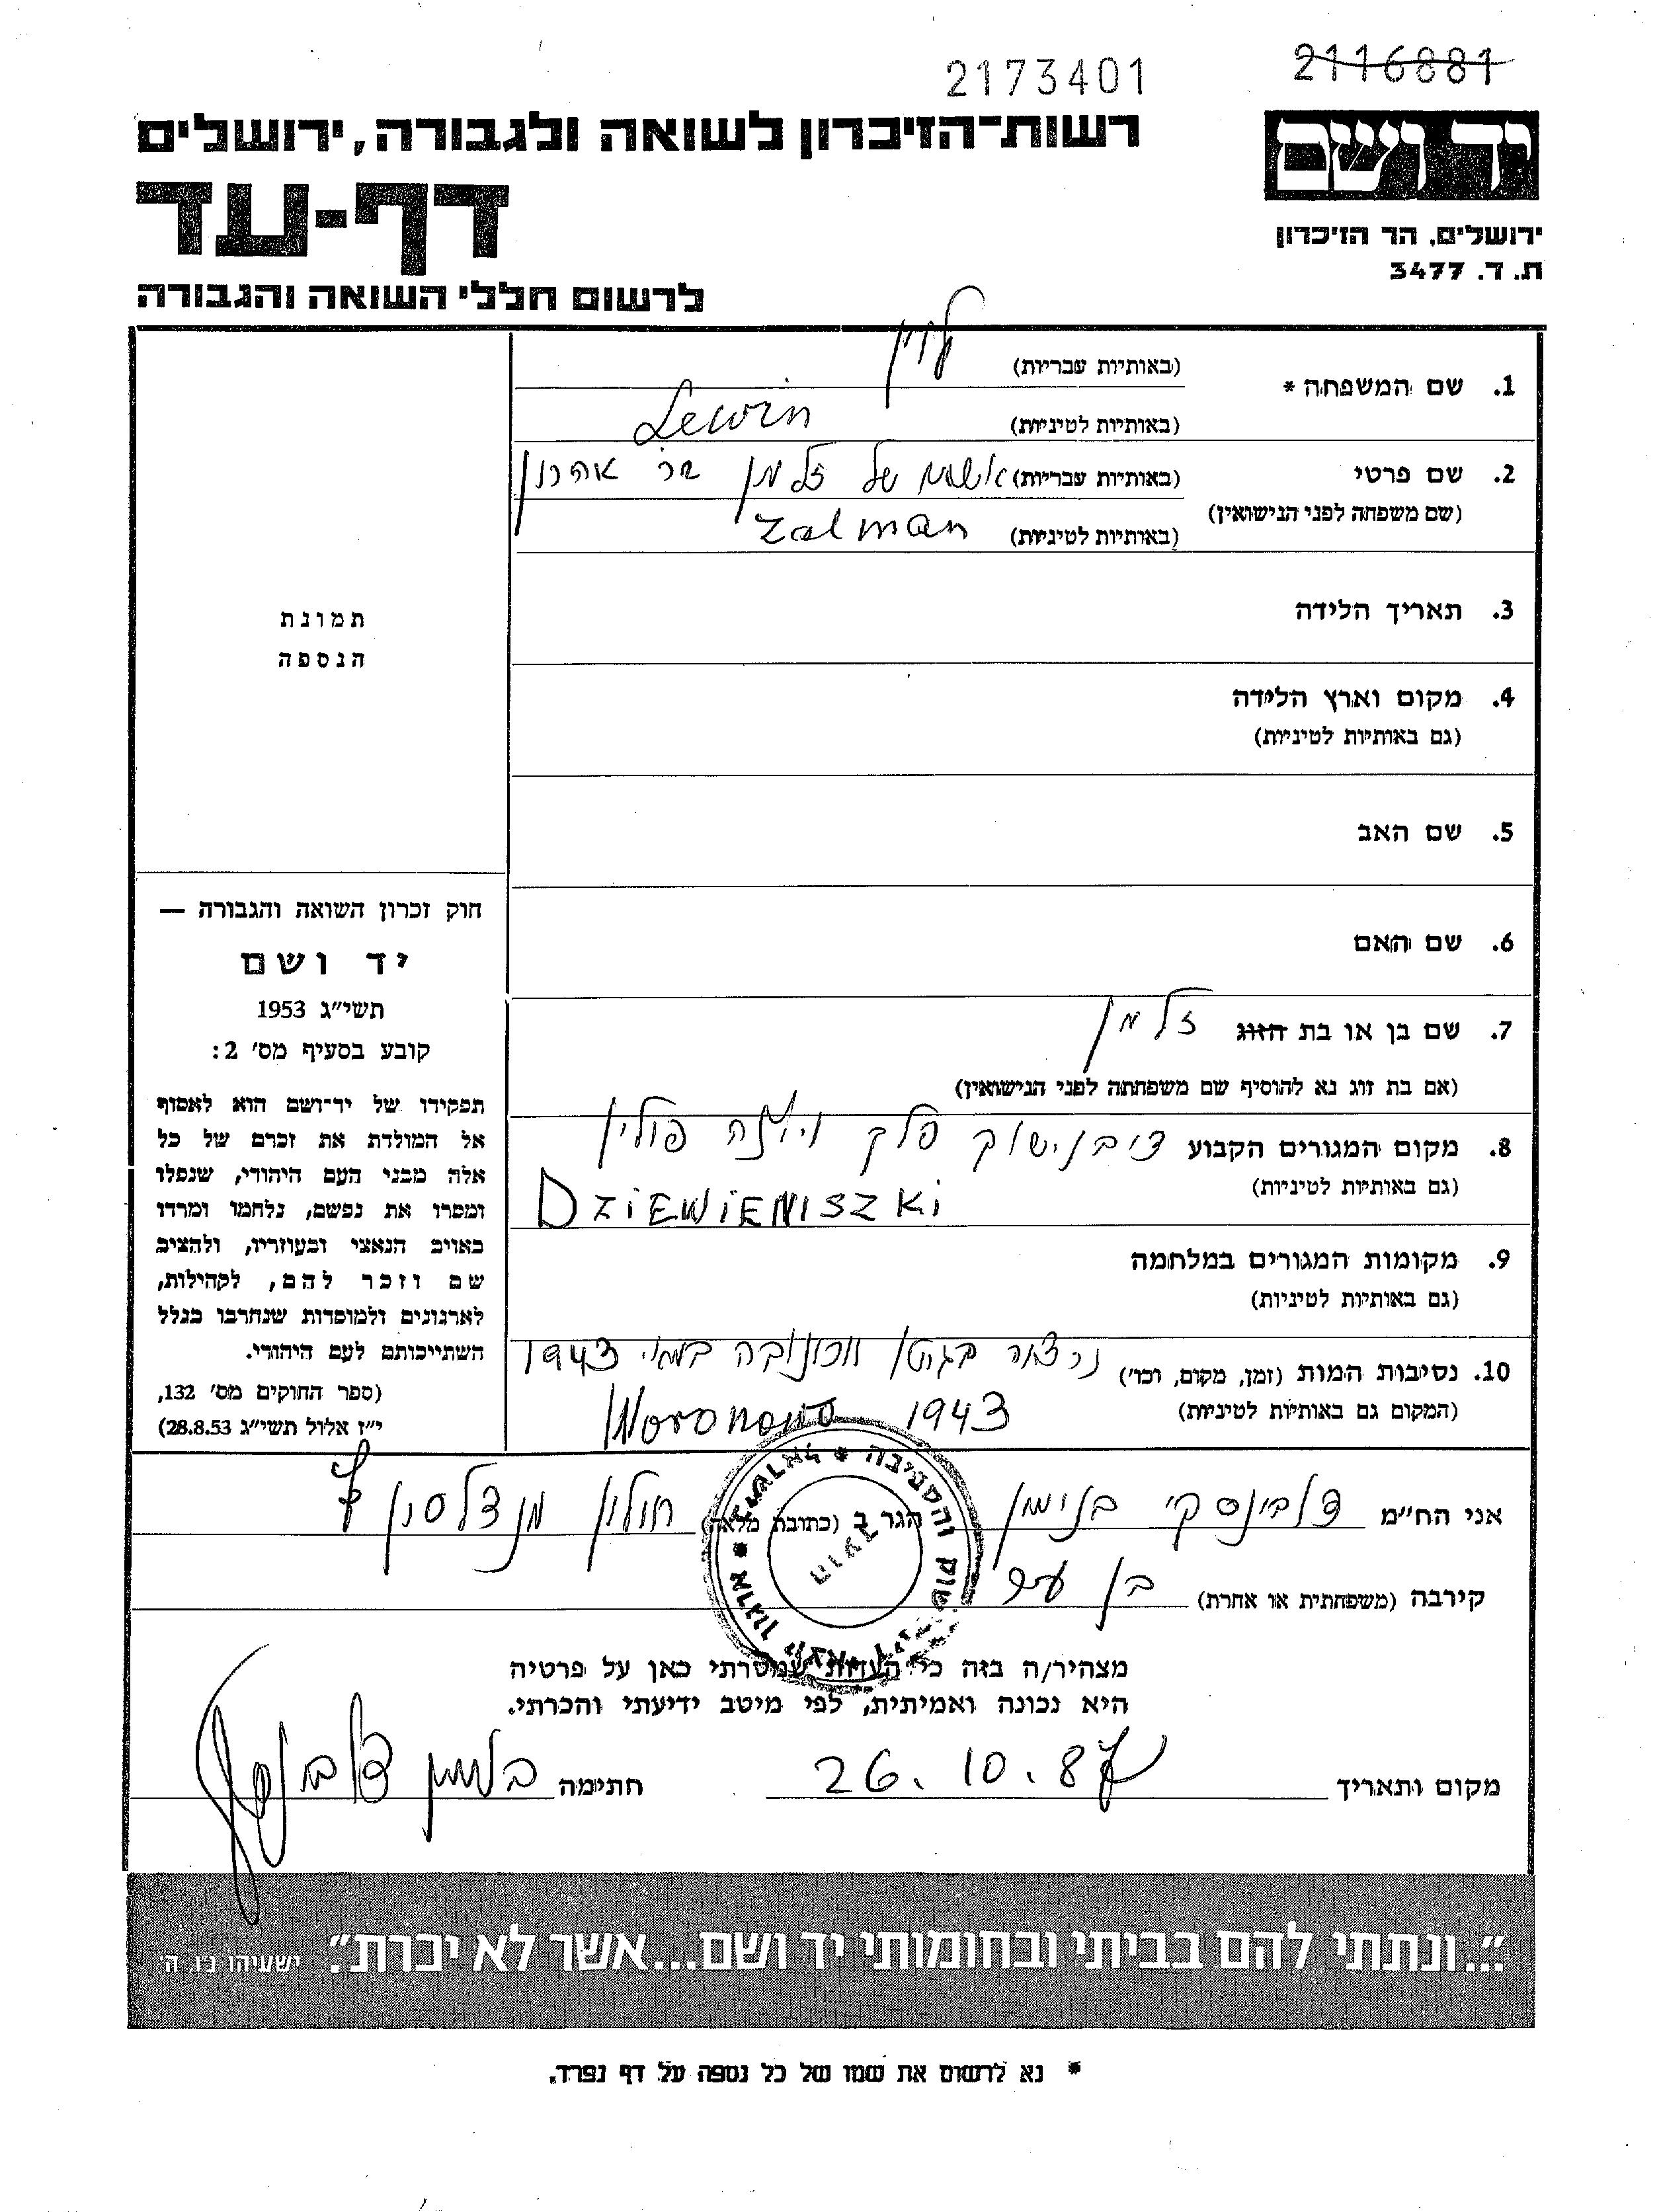 2173401
2116881
יד ושם
רשות־הזיכרון לשואה ולגבורה, ירושלים
דף-עד
ירושלים, הר הזיכרון
ת. ד. 3477
לרשום חללי השואה והגבורה
1. שם המשפחה * (באותיות עבריות) לוין
(באותיות לטיניות) Lewin
2. שם פרטי (באותיות עבריות) אשתו של זלמן בר אהרון
(שם משפחה לפני הנישואין) (באותיות לטיניות) Zalman
3. תאריך הלידה
4. מקום וארץ הלידה
(גם באותיות לטיניות)
5. שם האב
6. שם האם
7. שם בן או בת הזוג זלמן
(אם בת זוג נא להוסיף שם משפחתה לפני הנישואין)
8. מקום המגורים הקבוע דיבנישוק פלך וילנה פולין
(גם באותיות לטיניות) DZIEWIENISZKI
9. מקומות המגורים במלחמה
(גם באותיות לטיניות)
10. נסיבות המות (זמן, מקום, וכו') בגטו וורונובה במאי 1943
(המקום גם באותיות לטיניות) Woronowo 1943
תמונת
הנספה
חוק זכרון השואה והגבורה —
יד ושם
תשי״ג 1953
קובע בסעיף מס' 2:
תפקידו של יד־ושם הוא לאסוף
אל המולדת את זכרם של כל
אלה מבני העם היהודי, שנפלו
ומסרו את נפשם, נלחמו ומרדו
באויב הנאצי ובעוזריו, ולהציב
שם וזכר להם, לקהילות,
לארגונים ולמוסדות שנחרבו בגלל
השתייכותם לעם היהודי.
(ספר החוקים מס' 132,
י״ז אלול תשי״ג 28.8.53)
אני הח״מ דלבינסקי בנימין הגר ב (כתובת מלאה) חולון מנדלסון
קירבה (משפחתית או אחרת) בן עיר
והסביבה
הועד
מצהיר/ה בזה כי העדות שמסרתי כאן על פרטיה
היא נכונה ואמיתית, לפי מיטב ידיעתי והכרתי.
מקום ותאריך 26.10.87 חתימה בנימין
״...ונתתי להם בביתי ובחומותי יד ושם...אשר לא יכרת״. ישעיהו נו, ה
* נא לרשום את שמו של כל נספה על דף נפרד.